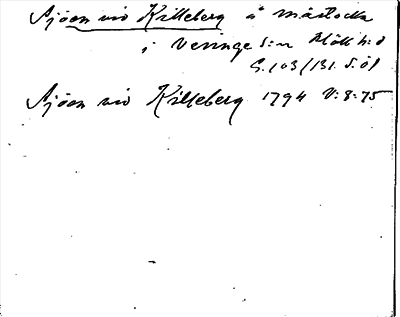 Sjöen vid Killeberg å Mårtocka
i Veinge s:n Höks h:d
S. 103/131 S. öl
Sjöen vid Killeberg 1794 V: 8: 75